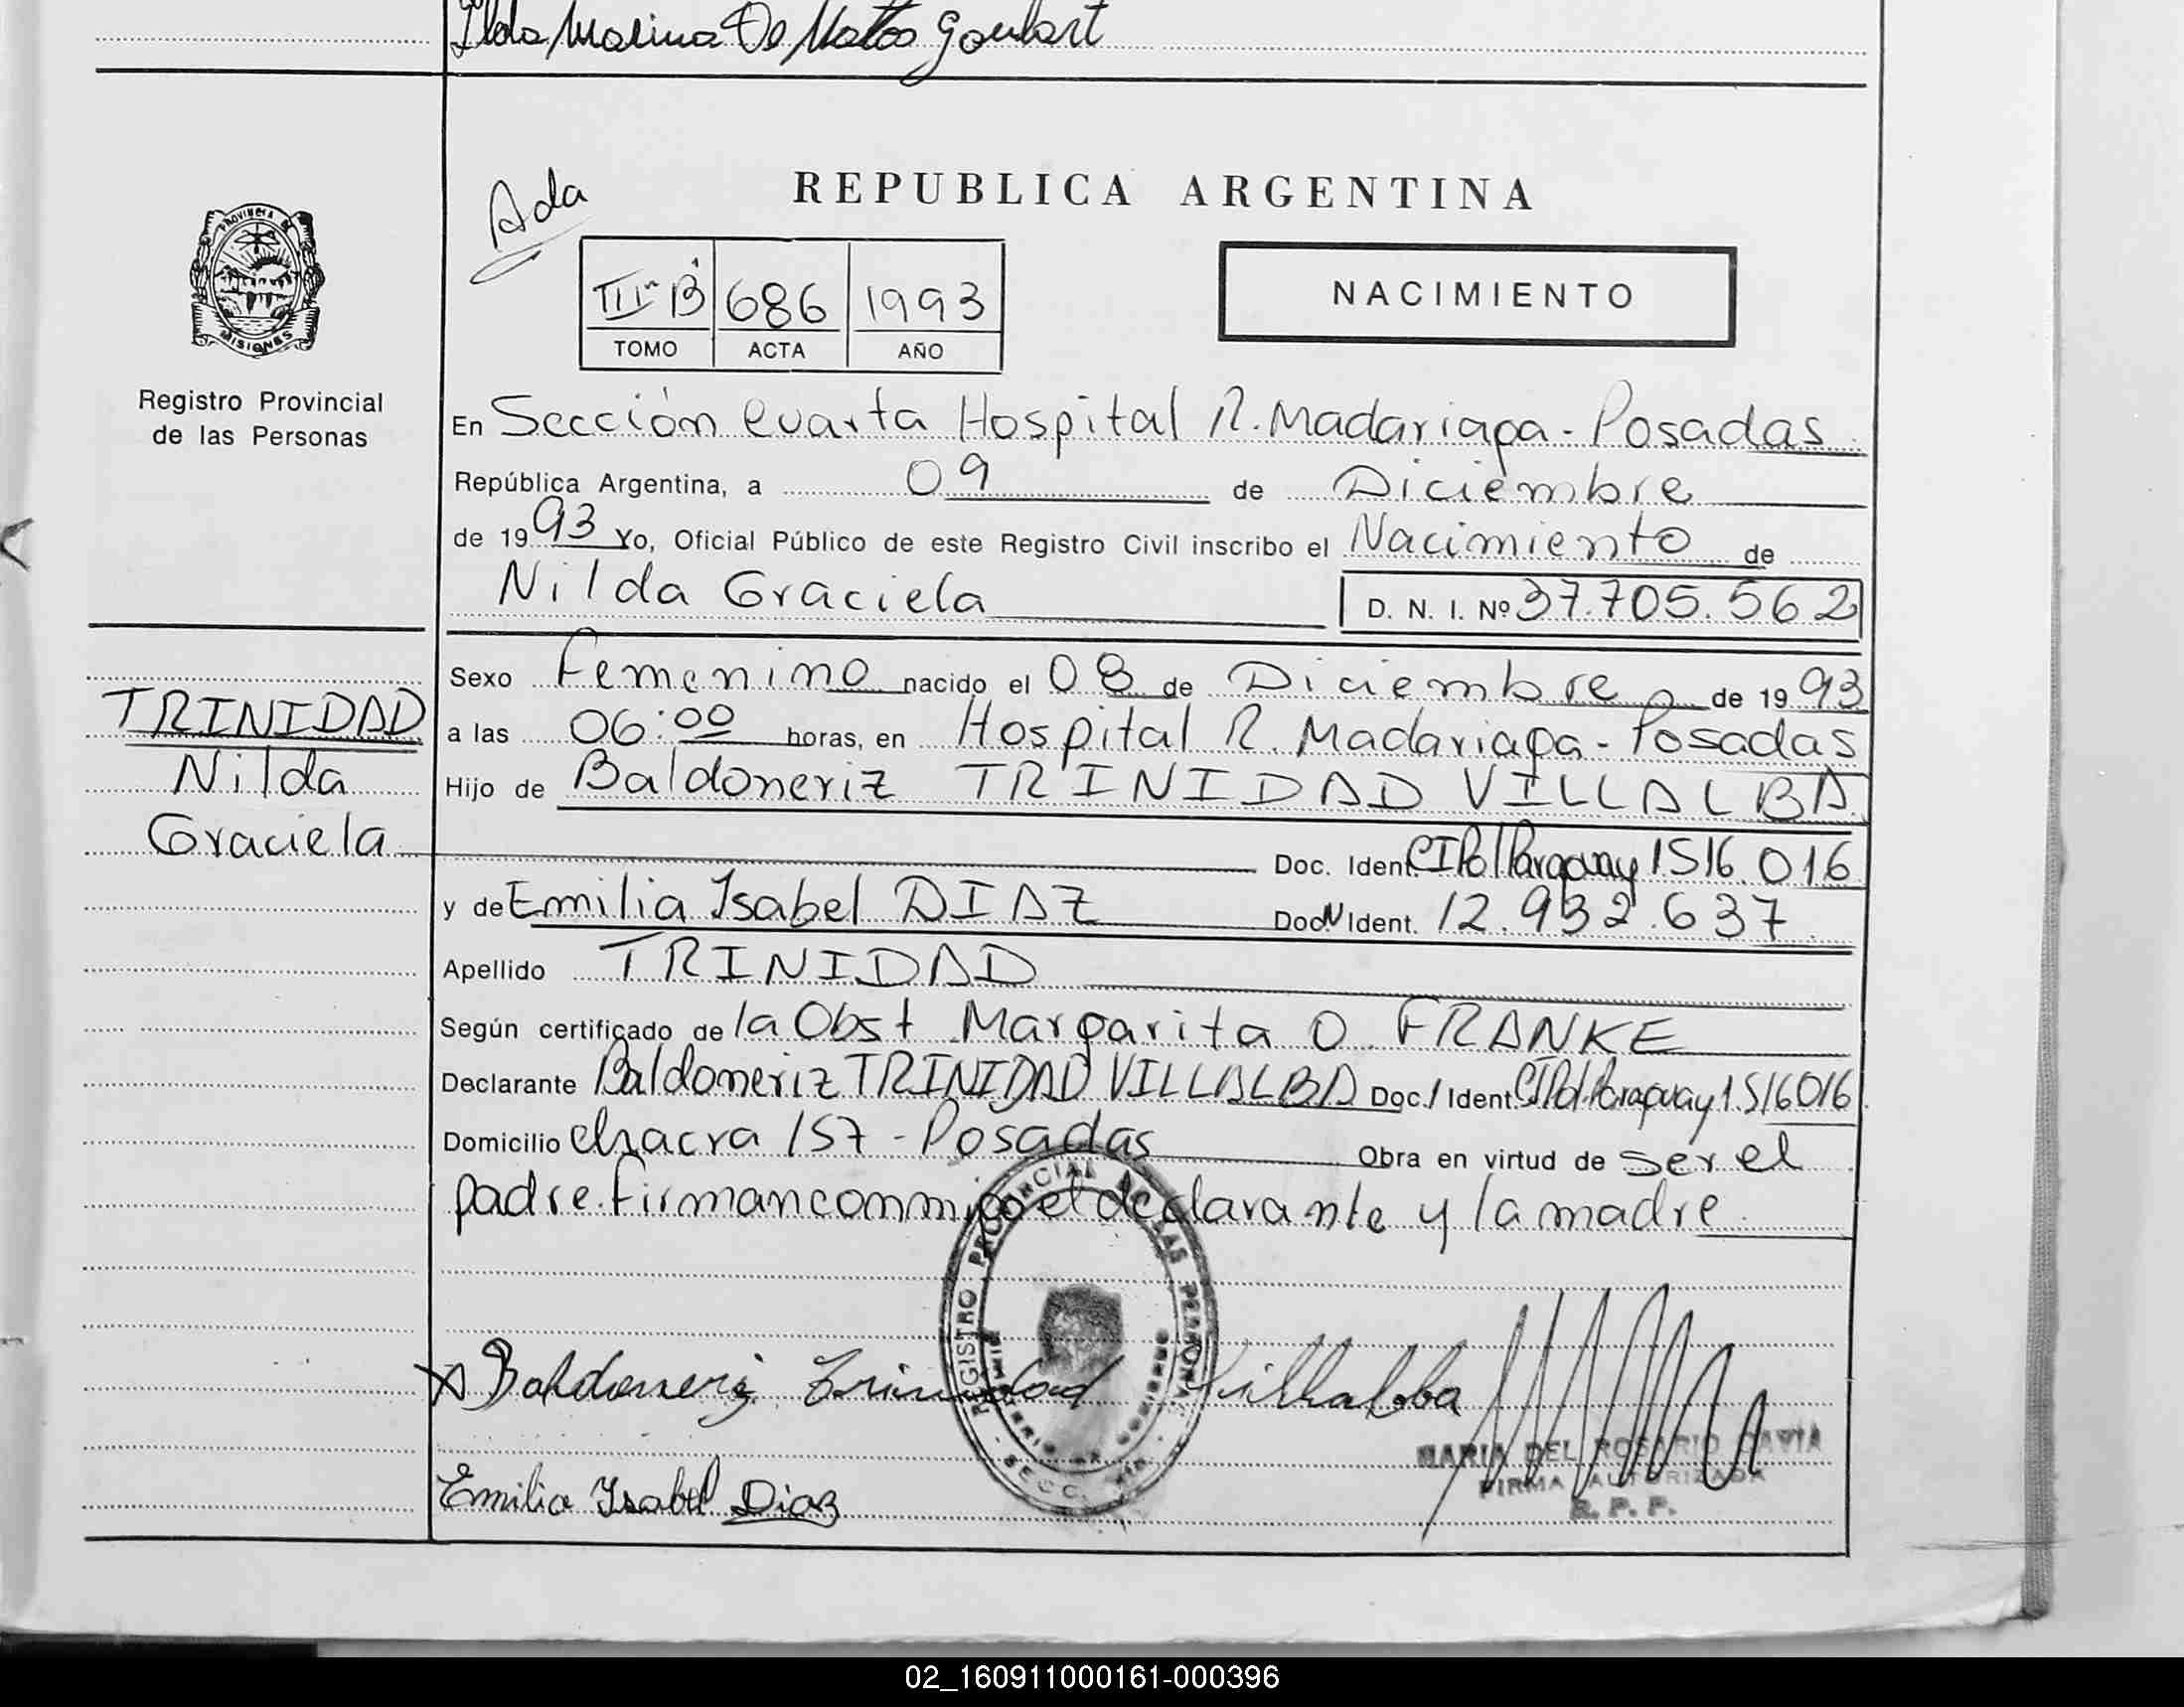 Ilda Marina De Mattos Goulart
REPUBLICA ARGENTINA
Ada
PROVINCIA DE
MISIONES
Registro Provincial
de las Personas
IIIº B 686 1993
TOMO ACTA AÑO
NACIMIENTO
En Sección Cuarta Hospital R. Madariaga - Posadas
República Argentina, a 09 de Diciembre
de 1993 Yo, Oficial Público de este Registro Civil inscribo el Nacimiento de
Nilda Graciela D. N. I. Nº 37.705.562
TRINIDAD
Nilda
Graciela
Sexo Femenino nacido el 08 de Diciembre de 1993
a las 06:00 horas, en Hospital R. Madariaga - Posadas
Hijo de Baldoneriz TRINIDAD VILLALBA
Doc. Ident. CIPol Paraguay 1516.016
y de Emilia Isabel DIAZ Doc N Ident. 12.932.637
Apellido TRINIDAD
Según certificado de la Obst Margarita O. FRANKE
Declarante Baldoneriz TRINIDAD VILLALBA Doc. Ident CIPol. Paraguay 1.516016
Domicilio Chacra 157 - Posadas Obra en virtud de ser el
padre. Firman conmigo el declarante y la madre
REGISTRO PROVINCIAL DE LAS PERSONAS
X Baldoneriz Trinidad Villalba
MARIA DEL ROSARIO DAVIA
FIRMA AUTORIZADA
R. P. P.
Emilia Isabel Diaz
02_160911000161-000396